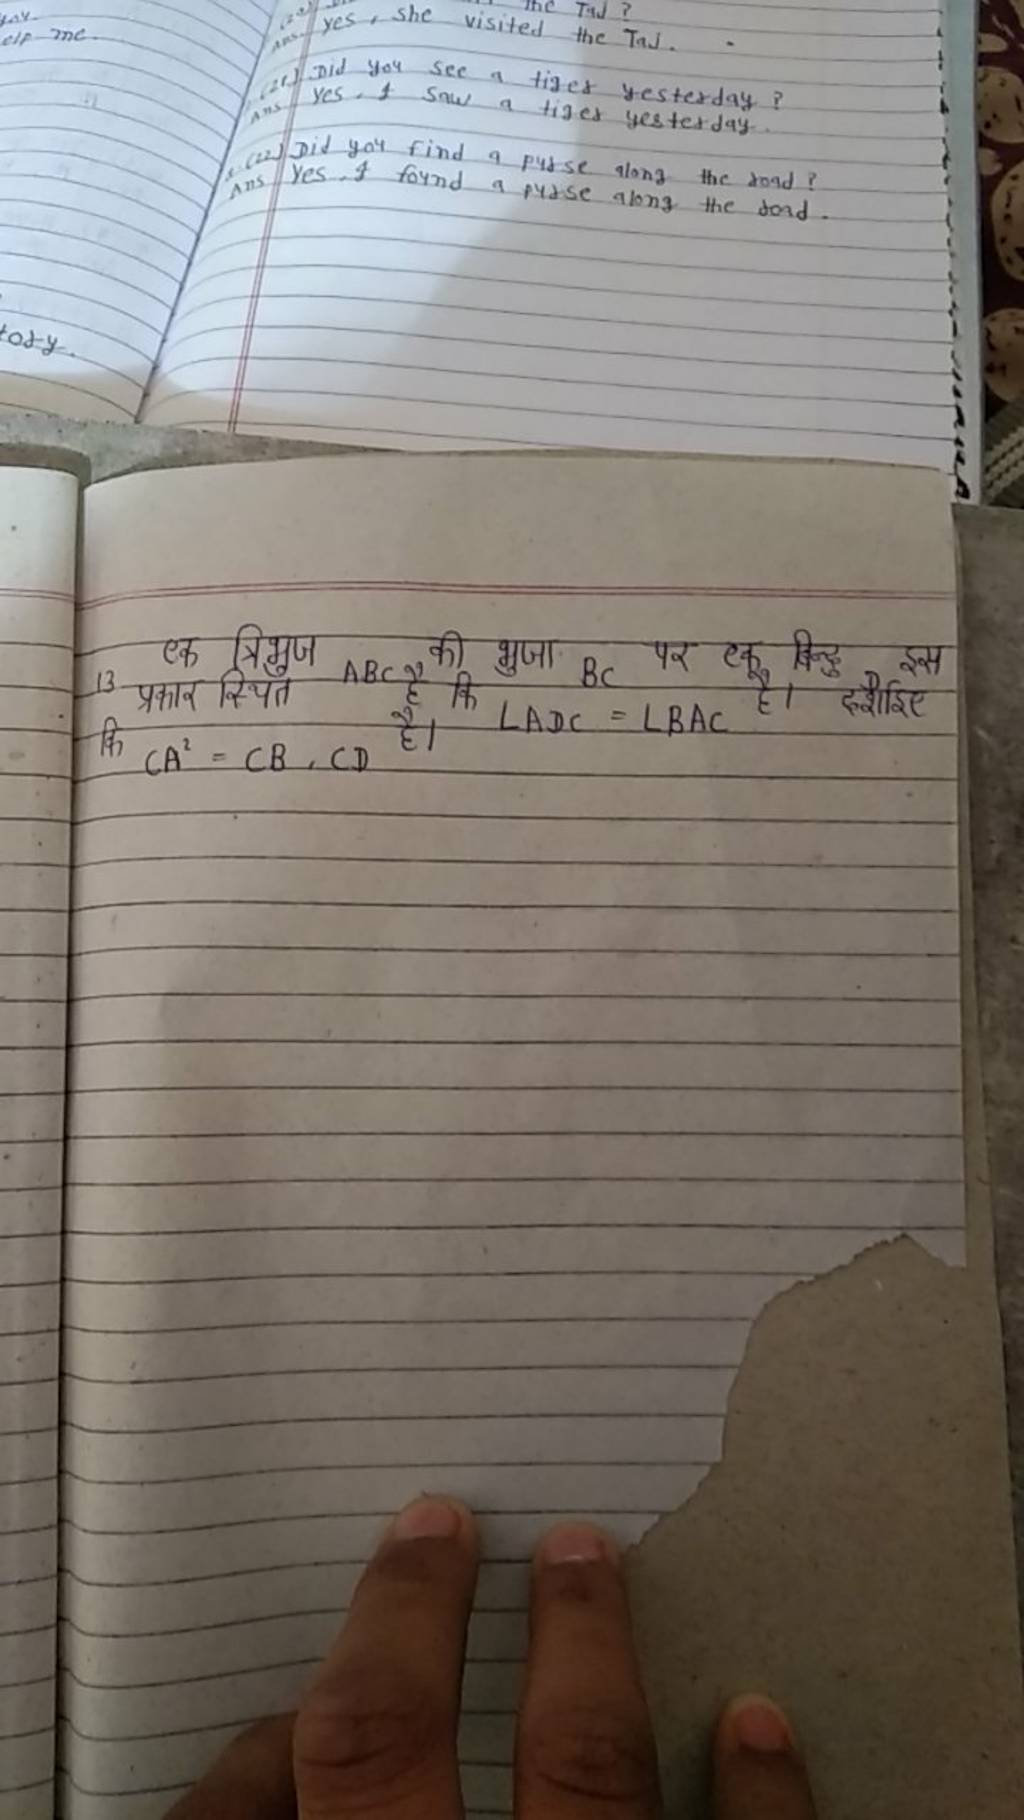 elp me.
tory.
the Taj ?
Ans yes, she visited the Taj.
(21) Did you see a tiger yesterday ?
Ans yes, I saw a tiger yesterday.
(22) Did you find a purse along the road ?
Ans yes, I found a purse along the road.
एक त्रिभुज ABC की भुजा BC पर एक बिन्दु इस
13 प्रकार स्थित है कि LADC = LBAC है। दर्शाइए
कि CA² = CB . CD है।